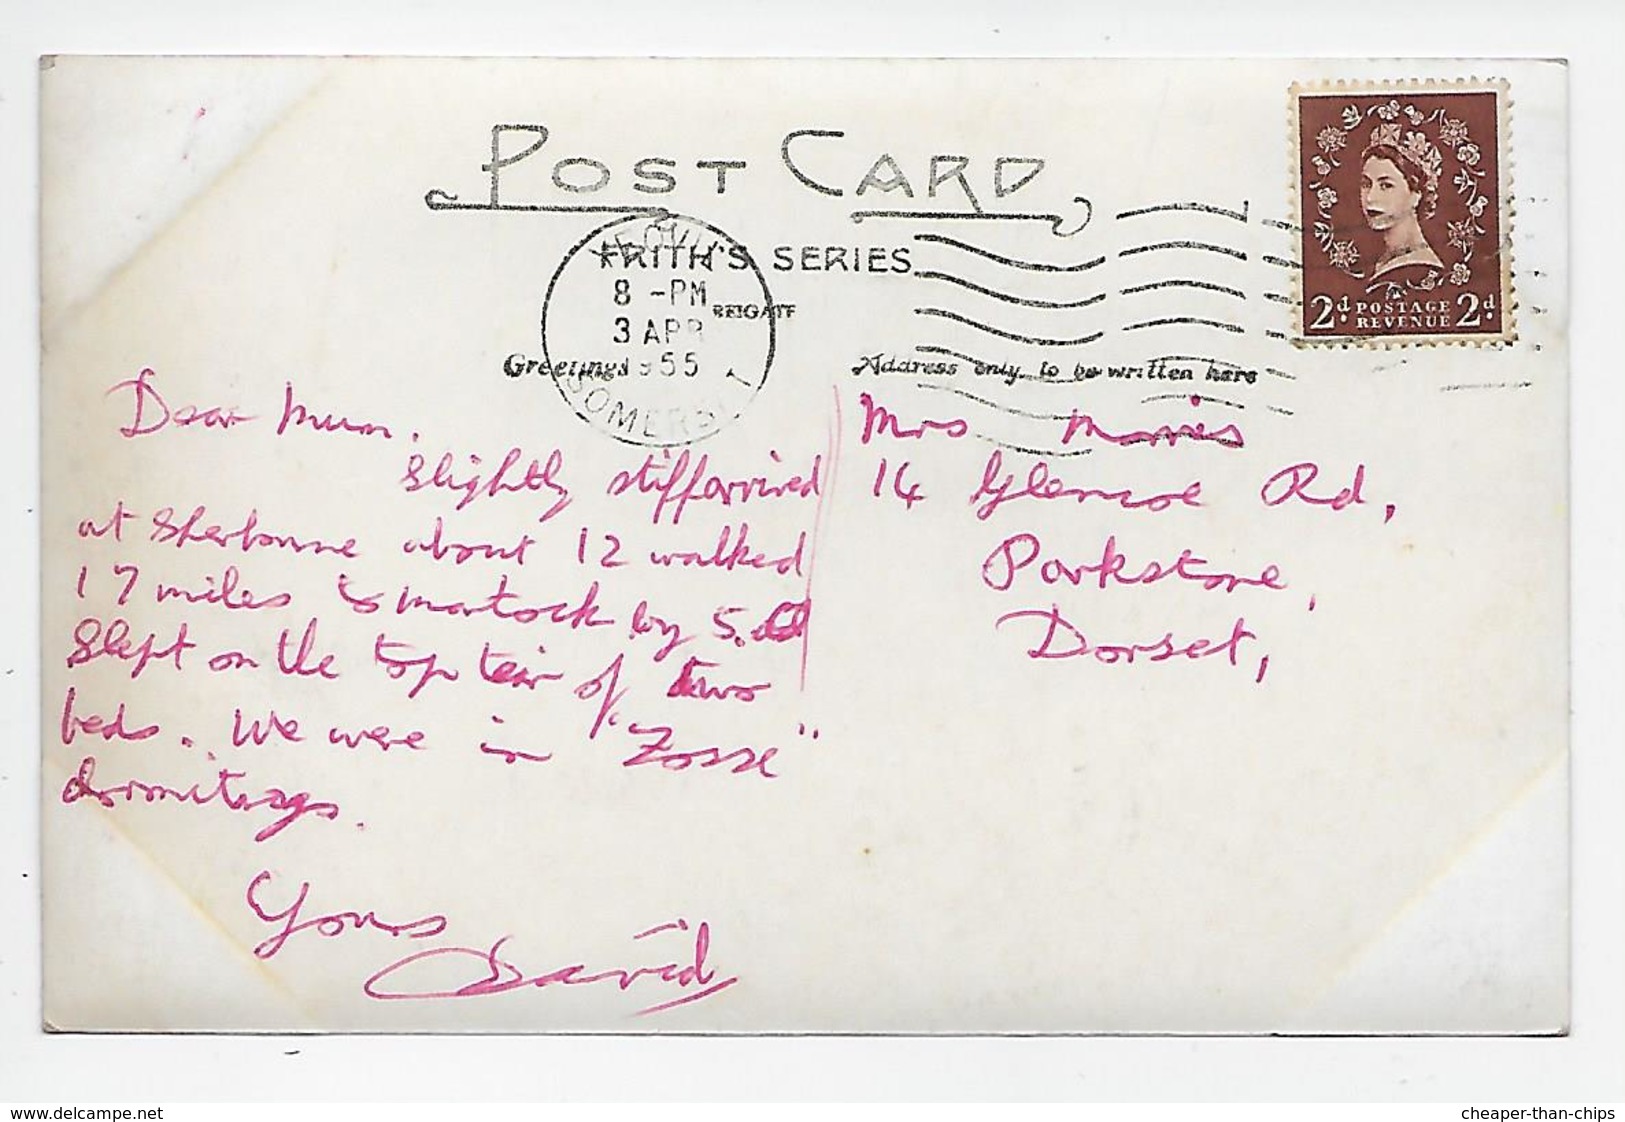 POST CARD
FRITH'S SERIES
REIGATE
YEOVIL
8 - PM
3 APR
1955
SOMERSET
Greetings
Address only to be written here
2d. POSTAGE REVENUE 2d.
Dear Mum.
Slightly stiff arrived
at Sherborne about 12 walked
17 miles to Martock by 5.
Slept on the top teir of two
beds. We were in "Zosse"
dormitorys.
Yours
David
Mrs Morris
14 Glencoe Rd,
Parkstone,
Dorset,
www.delcampe.net
cheaper-than-chips